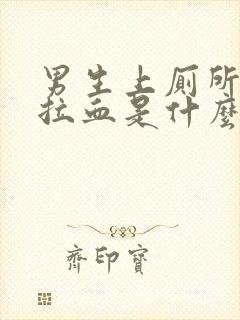 男生上厕所
拉血是什麽
齊印寶